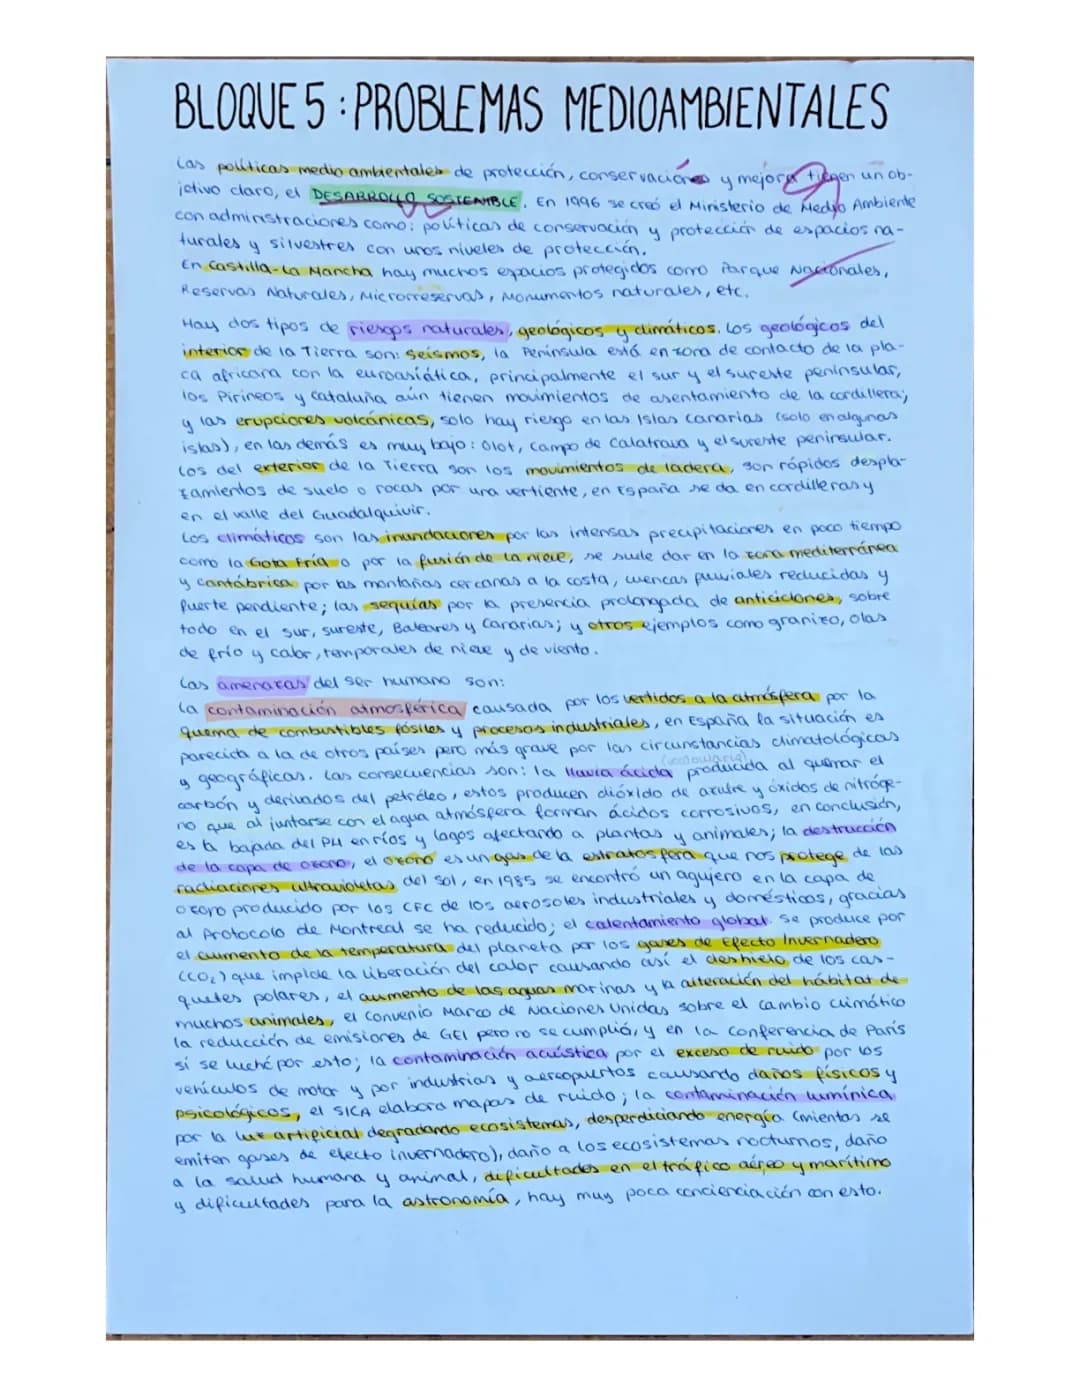 BLOQUE 5 : PROBLEMAS MEDIOAMBIENTALES
Las políticas medio ambientales de protección, conservación y mejora tienen un ob-
jetivo claro, el DESARROLLO SOSTENIBLE. En 1996 se creó el Ministerio de Medio Ambiente
con administraciones como: políticas de conservación y protección de espacios na-
turales y silvestres con unos niveles de protección.
En Castilla-La Mancha hay muchos espacios protegidos como Parque Nacionales,
Reservas Naturales, Microrreservas, Monumentos naturales, etc.
Hay dos tipos de riesgos naturales, geológicos y climáticos. Los geológicos del
interior de la Tierra son: seísmos, la Península está en zona de contacto de la pla-
ca africana con la euroasiática, principalmente el sur y el sureste peninsular,
los Pirineos y Cataluña aún tienen movimientos de asentamiento de la cordillera;
y las erupciones volcánicas, solo hay riesgo en las Islas Canarias (solo en algunas
islas), en las demás es muy bajo: Olot, Campo de Calatrava y el sureste peninsular.
Los del exterior de la Tierra son los movimientos de ladera, son rápidos despla-
zamientos de suelo o rocas por una vertiente, en España se da en cordilleras y
en el valle del Guadalquivir.
Los climáticos son las inundaciones por las intensas precipitaciones en poco tiempo
como la Gota Fría o por la fusión de la nieve, se suele dar en la zona mediterránea
y cantábrica por las montañas cercanas a la costa, cuencas pluviales reducidas y
fuerte pendiente; las sequías por la presencia prolongada de anticiclones, sobre
todo en el sur, sureste, Baleares y Canarias; y otros ejemplos como granizo, olas
de frío y calor, temporales de nieve y de viento.
Las amenazas del ser humano son:
La contaminación atmosférica causada por los vertidos a la atmósfera por la
quema de combustibles fósiles y procesos industriales, en España la situación es
parecida a la de otros países pero más grave por las circunstancias climatológicas
y geográficas. Las consecuencias son: la lluvia ácida producida al quemar el
carbón y derivados del petróleo, estos producen dióxido de azufre y óxidos de nitróge-
no que al juntarse con el agua atmósfera forman ácidos corrosivos, en conclusión,
es la bajada del PH en ríos y lagos afectando a plantas y animales; la destrucción
de la capa de ozono, el ozono es un gas de la estratosfera que nos protege de las
radiaciones ultravioletas del sol, en 1985 se encontró un agujero en la capa de
ozono producido por los CFC de los aerosoles industriales y domésticos, gracias
al Protocolo de Montreal se ha reducido; el calentamiento global. Se produce por
el aumento de la temperatura del planeta por los gases de Efecto Invernadero
(CO₂) que impide la liberación del calor causando así el deshielo de los cas-
quetes polares, el aumento de las aguas marinas y la alteración del hábitat de
muchos animales, el Convenio Marco de Naciones Unidas sobre el cambio climático
la reducción de emisiones de GEI pero no se cumplió, y en la Conferencia de París
sí se luchó por esto; la contaminación acústica por el exceso de ruido por los
vehículos de motor y por industrias y aeropuertos causando daños físicos y
psicológicos, el SICA elabora mapas de ruido; la contaminación lumínica
por la luz artificial degradando ecosistemas, desperdiciando energía (mientas se
emiten gases de efecto invernadero), daño a los ecosistemas nocturnos, daño
a la salud humana y animal, dificultades en el tráfico aéreo y marítimo
y dificultades para la astronomía, hay muy poca concienciación con esto.